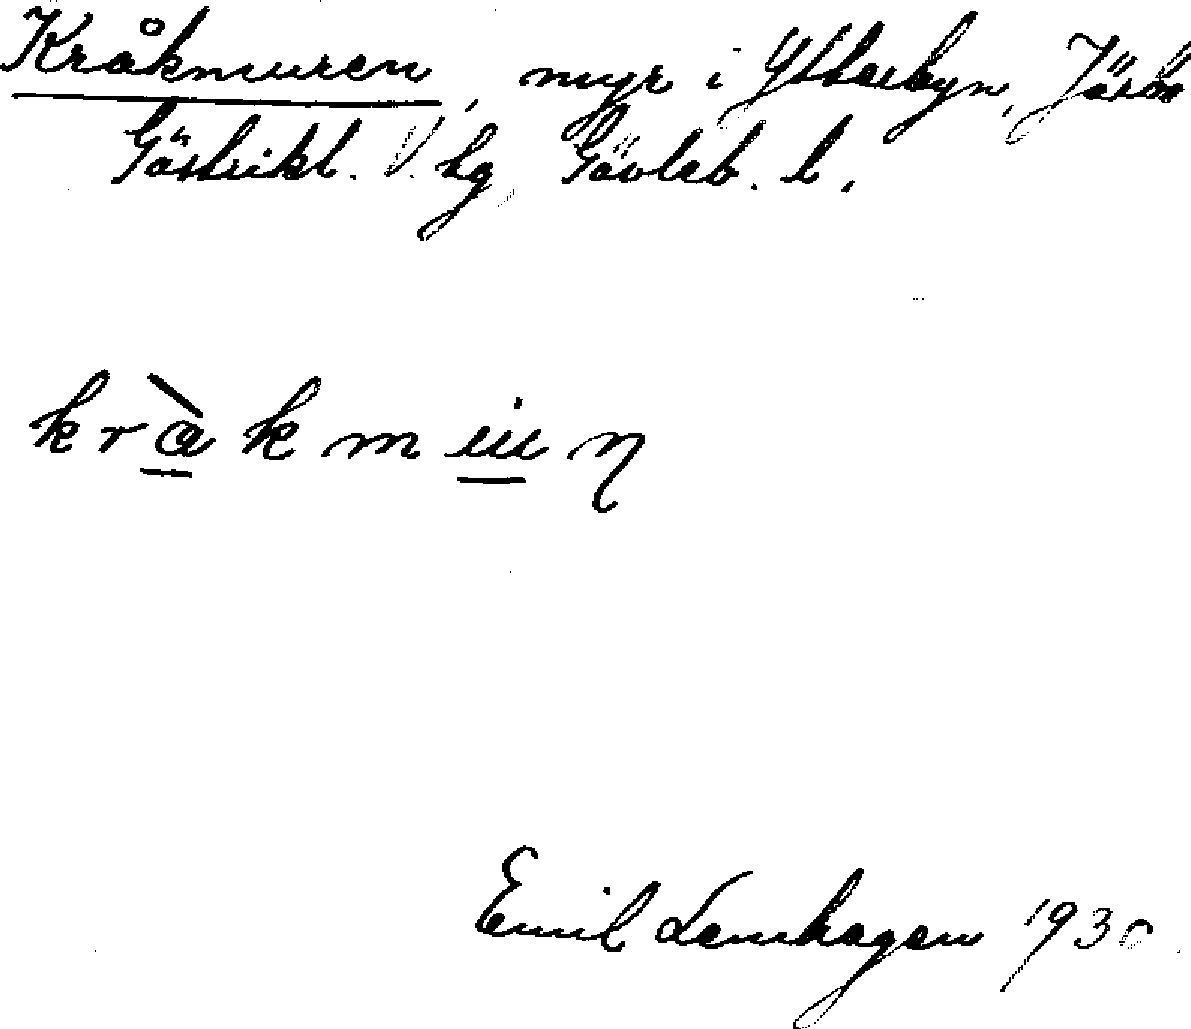 Kråkmuren, myr i Ytterbyn, Järbo
Gästrikl. V. hg, Gävleb. l.
kràkmuɯη
Emil Lenhagen 1930